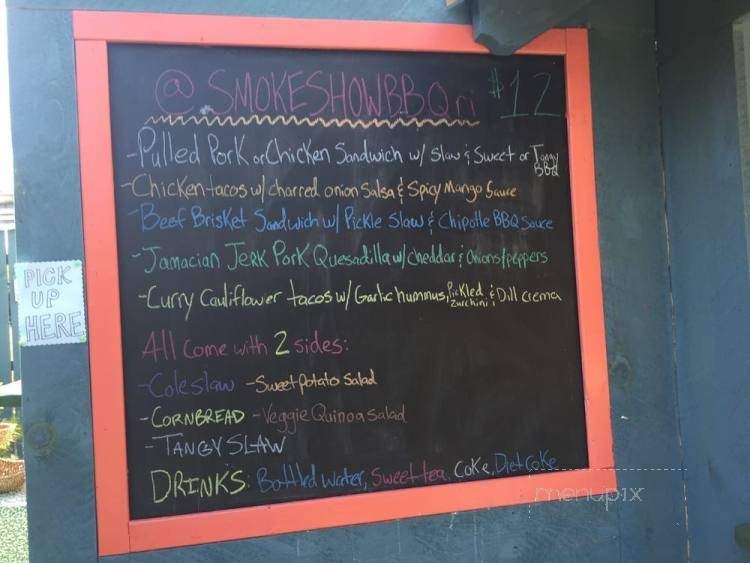 @SMOKESHOWBBQri $12
-Pulled Pork or Chicken Sandwich w/ Slaw & Sweet or Tangy BBQ
-Chicken tacos w/ charred onion Salsa & Spicy Mango Sauce
-Beef Brisket Sandwich w/ Pickle Slaw & Chipotle BBQ Sauce
-Jamacian Jerk Pork Quesadilla w/ cheddar & onions/peppers
-Curry Cauliflower tacos w/ Garlic hummus, Pickled Zucchini & Dill Crema
PICK
UP
HERE
All Come with 2 sides:
-Coleslaw -Sweet Potato Salad
-CORNBREAD -Veggie Quinoa Salad
-TANGY SLAW
DRINKS: Bottled water, Sweet tea, Coke, Diet Coke
menupix